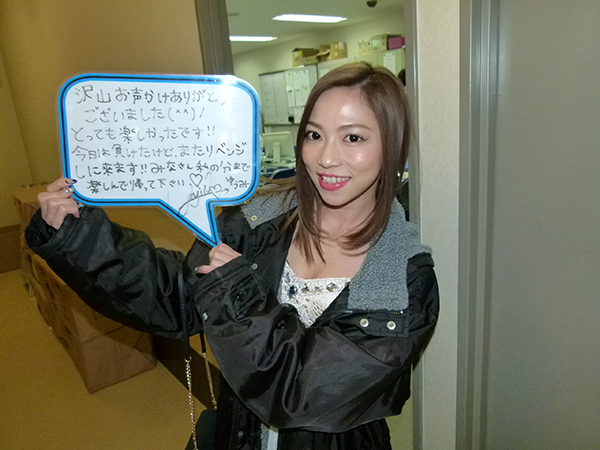 沢山お声かけありがとう
ございました(^^)!
とっても楽しかったです!!
今日は負けたけど、またリベンジ
しに来ます!!みなさん私の分まで
楽しんで帰って下さい
ゆうみ